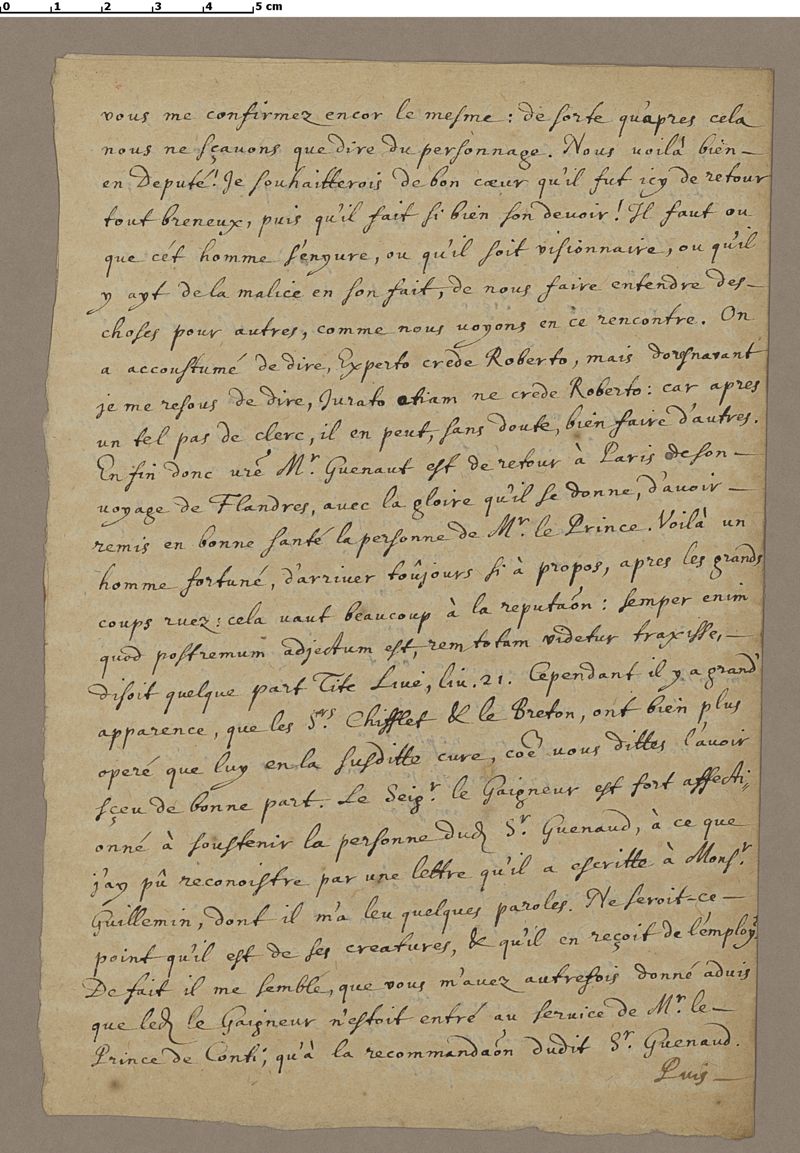 0 1 2 3 4 5 cm
vous me confirmez encor le mesme : de sorte qu'apres cela
nous ne sçavons que dire du personnage. Nous voilà bien
en Deputé! Je souhaitterois de bon cœur qu'il fut icy de retour
tout breneux, puis qu'il fait si bien son devoir! Il faut ou
que cét homme s'enyure, ou qu'il soit visionnaire, ou qu'il
y ayt de la malice en son fait, de nous faire entendre des
choses pour autres, comme nous voyons en ce rencontre. On
a accoustumé de dire, Experto crede Roberto, mais doresnavant
je me resous de dire, Jurato etiam ne crede Roberto : car apres
un tel pas de clerc, il en peut, sans doute, bien faire d'autres.
En fin donc vre Mr. Guenaut est de retour à Paris de son
voyage de Flandres, avec la gloire qu'il se donne, d'avoir
remis en bonne santé la personne de Mr. le Prince. Voilà un
homme fortuné, d'arriver toûjours si à propos, apres les grands
coups ruez : cela vaut beaucoup à la reputaõn : semper enim
quod postremum adjectum est, rem totam videtur traxisse,
disoit quelque part Tite Live, liv. 21. Cependant il y a grand'
apparence, que les Srs. Chifflet & le Breton, ont bien plus
operé que luy en la susditte cure, coe vous dittes l'avoir
sçeu de bonne part. Le Seigr. le Gaigneur est fort affecti
onné à soustenir la personne dud. Sr. Guenaud, à ce que
j'ay pû reconoistre par une lettre qu'il a escritte à Monsr.
Guillemin, dont il m'a leu quelques paroles. Ne seroit-ce
point qu'il est de ses creatures, & qu'il en reçoit de l'employ?
De fait il me semble, que vous m'avez autrefois donné advis
que led. le Gaigneur n'estoit entré au service de Mr. le
Prince de Conti, qu'à la recommandaõn dudit Sr. Guenaud.
Puis